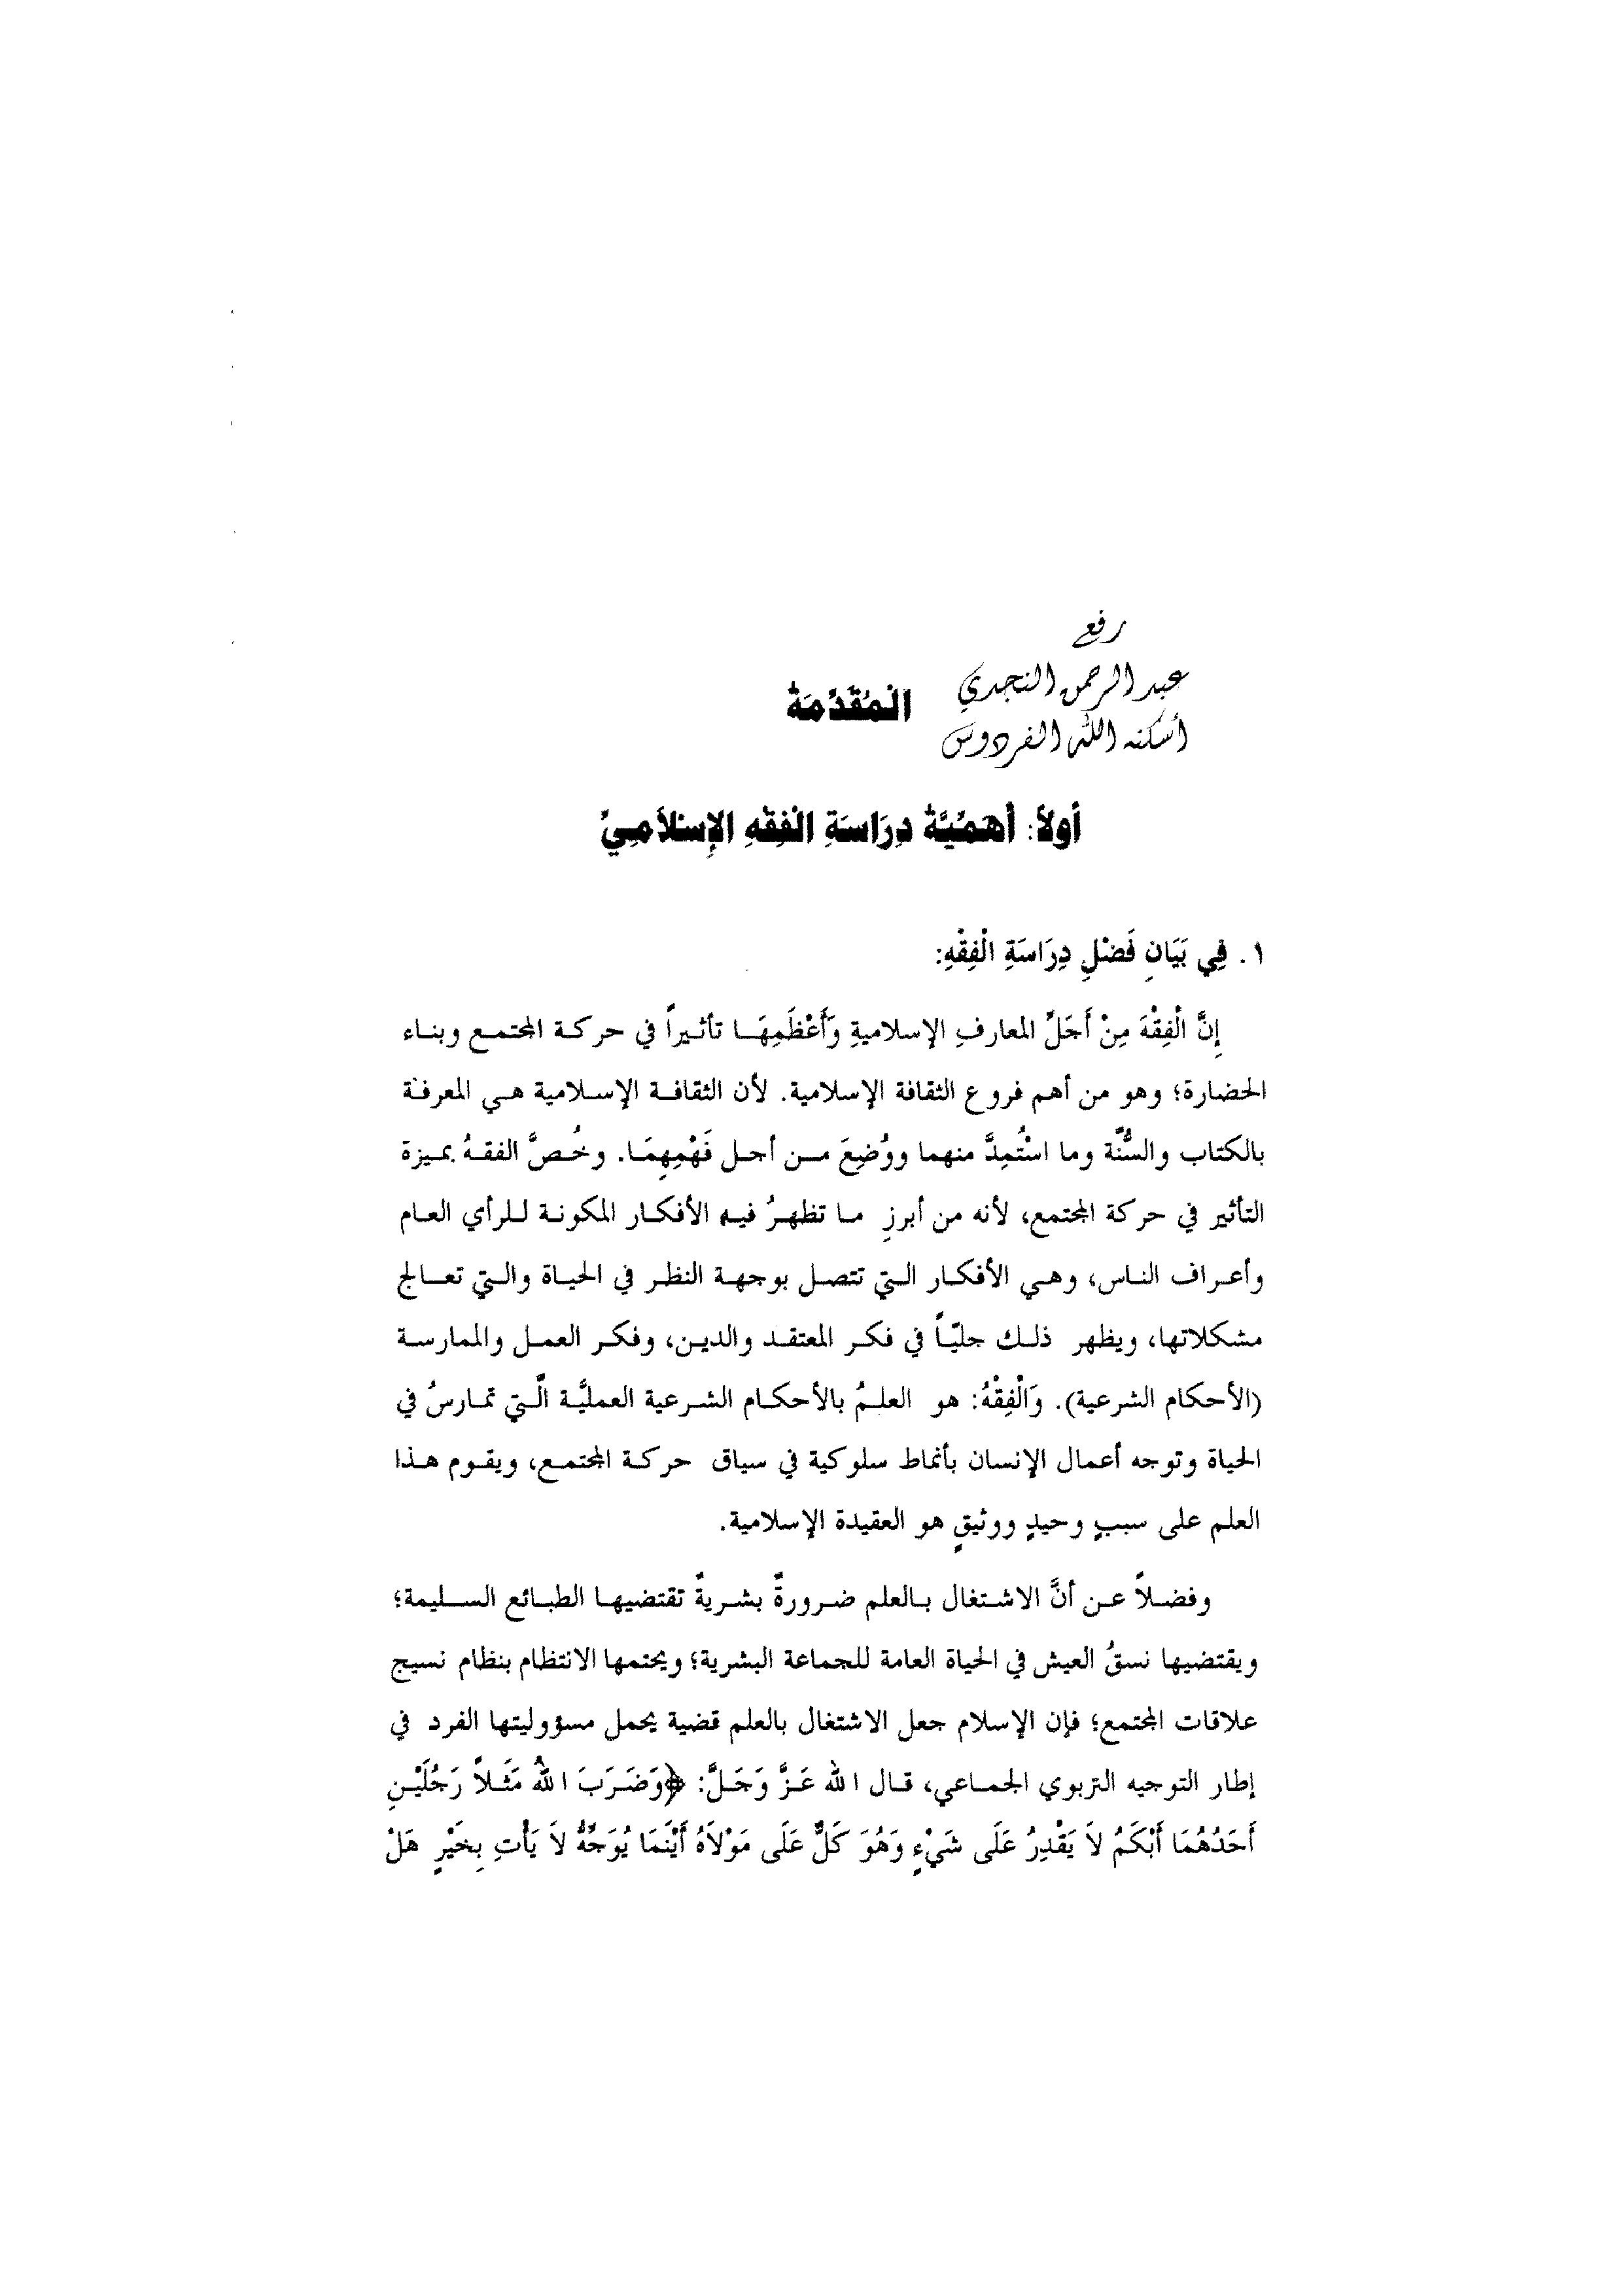 رفع
عبد الرحمن النجدي
أسكنه الله الفردوس
الْمُقَدِّمَةُ
أولاً: أَهَمِّيَّةُ دِرَاسَةِ الْفِقْهِ الإِسْلاَمِيِّ
١. فِي بَيَانِ فَضْلِ دِرَاسَةِ الْفِقْهِ:
إِنَّ الْفِقْهَ مِنْ أَجَلِّ المعارفِ الإسلاميةِ وَأَعْظَمِهَا تأثيراً في حركة المجتمع وبناء
الحضارة؛ وهو من أهم فروع الثقافة الإسلامية. لأن الثقافة الإسلامية هي المعرفة
بالكتاب والسُّنَّة وما اسْتُمِدَّ منهما ووُضِعَ من أجل فَهْمِهِمَا. وخُصَّ الفقهُ بميزة
التأثير في حركة المجتمع، لأنه من أبرزِ ما تظهرُ فيه الأفكار المكونة للرأي العام
وأعراف الناس، وهي الأفكار التي تتصل بوجهة النظر في الحياة والتي تعالج
مشكلاتها، ويظهر ذلك جليّاً في فكر المعتقد والدين، وفكر العمل والممارسة
(الأحكام الشرعية). وَالْفِقْهُ: هو العلمُ بالأحكام الشرعية العمليَّة الَّتي تمارسُ في
الحياة وتوجه أعمال الإنسان بأنماط سلوكية في سياق حركة المجتمع، ويقوم هذا
العلم على سببٍ وحيدٍ ووثيقٍ هو العقيدة الإسلامية.
وفضلاً عن أنَّ الاشتغال بالعلم ضرورةٌ بشريةٌ تقتضيها الطبائع السليمة؛
ويقتضيها نسقُ العيش في الحياة العامة للجماعة البشرية؛ ويحتمها الانتظام بنظام نسيج
علاقات المجتمع؛ فإن الإسلام جعل الاشتغال بالعلم قضية يحمل مسؤوليتها الفرد في
إطار التوجيه التربوي الجماعي، قال الله عَزَّ وَجَلَّ: ﴿وَضَرَبَ اللهُ مَثَلاً رَجُلَيْنِ
أَحَدُهُمَا أَبْكَمُ لاَ يَقْدِرُ عَلَى شَيْءٍ وَهُوَ كَلٌّ عَلَى مَوْلاَهُ أَيْنَمَا يُوَجِّهْهُ لاَ يَأْتِ بِخَيْرٍ هَلْ